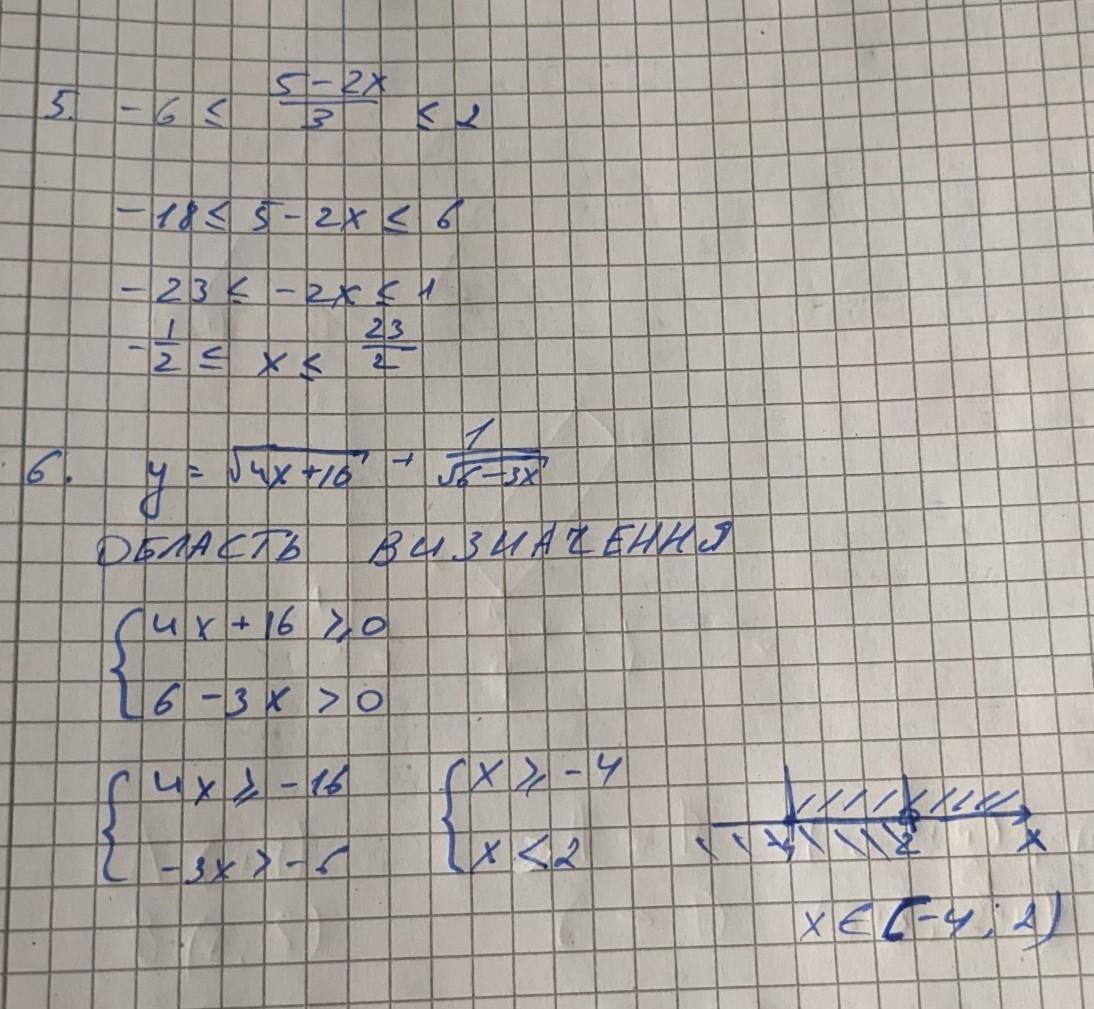 5. -6 ≤ (5-2x)/3 ≤ 2
-18 ≤ 5-2x ≤ 6
-23 ≤ -2x ≤ 1
-1/2 ≤ x ≤ 23/2
6. y = √(4x+16) + 1/√(6-3x)
ОБЛАСТЬ ВИЗНАЧЕННЯ
{ 4x+16 ≥ 0
6-3x > 0
{ 4x ≥ -16
-3x > -6
{ x ≥ -4
x < 2
-4 2 x
x ∈ [-4; 2)